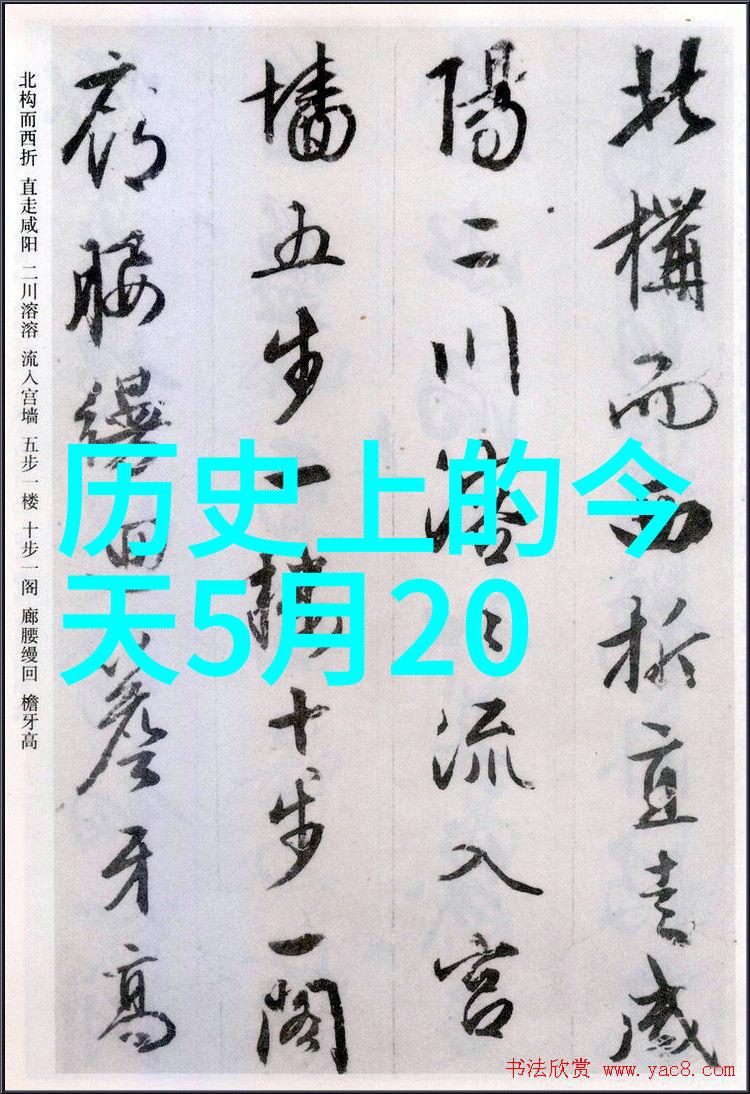 北構而西折直走咸
陽二川溶〻流入宫
墻五步一楼十步一閣
廊腰縵回簷牙高
北构而西折 直走咸阳 二川溶溶 流入宫墙 五步一楼 十步一阁 廊腰缦回 檐牙高
历史上的今
天5月20
书法欣赏 www.yac8.com